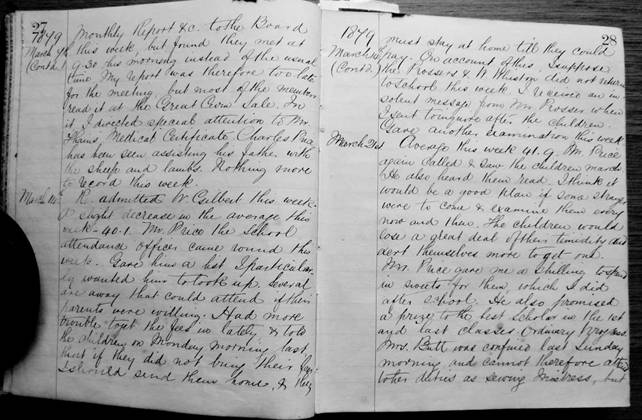 27
1879
March 7th
(Contd.)
Monthly Report &c. to the Board
this week, but found they met at
9.30 this morning instead of the usual
time. My report was therefore too late
for the meeting, but most of the members
read it at the Great Corn Sale. In
it I directed special attention to Mr.
Medical Certificate. Charles Price
has been seen assisting his father with
the sheep and lambs. Nothing more
to record this week.
March 14th
Re admitted W. Gilbert this week.
A slight decrease in the average this
week - 40.1. Mr. Price the school
attendance officer came round this
week. Gave him a list I particular-
ly wanted him to look up. Several
are away that could attend if their
parents were willing. Had more
trouble to get the fees in lately & told
the children on Monday morning last,
that if they did not bring their pay
I should send them home, & they
28
1879
March 14th
(Contd.)
must stay at home till they could
pay. On account of this I suppose
the Prossers & W. did not return
to school this week. I received an in-
solent message from Mr. Prosser when
I sent to inquire after the children.
Gave another examination this week.
March 21st
Average this week 41.9. Mr. Price
again called & saw the children march.
He also heard them read. I think it
would be a good plan if some strangers
were to come & examine them every
now and then. The children would
lose a great deal of their timidity and
exert themselves more to get on.
Mr. Price gave me a shilling to spend
in sweets for them, which I did
after school. He also promised
a prize to the best scholar in the 1st
and last classes. Ordinary Progress.
Mrs. Butt was confined last Sunday
morning and cannot therefore attend
to her duties as sewing mistress, but